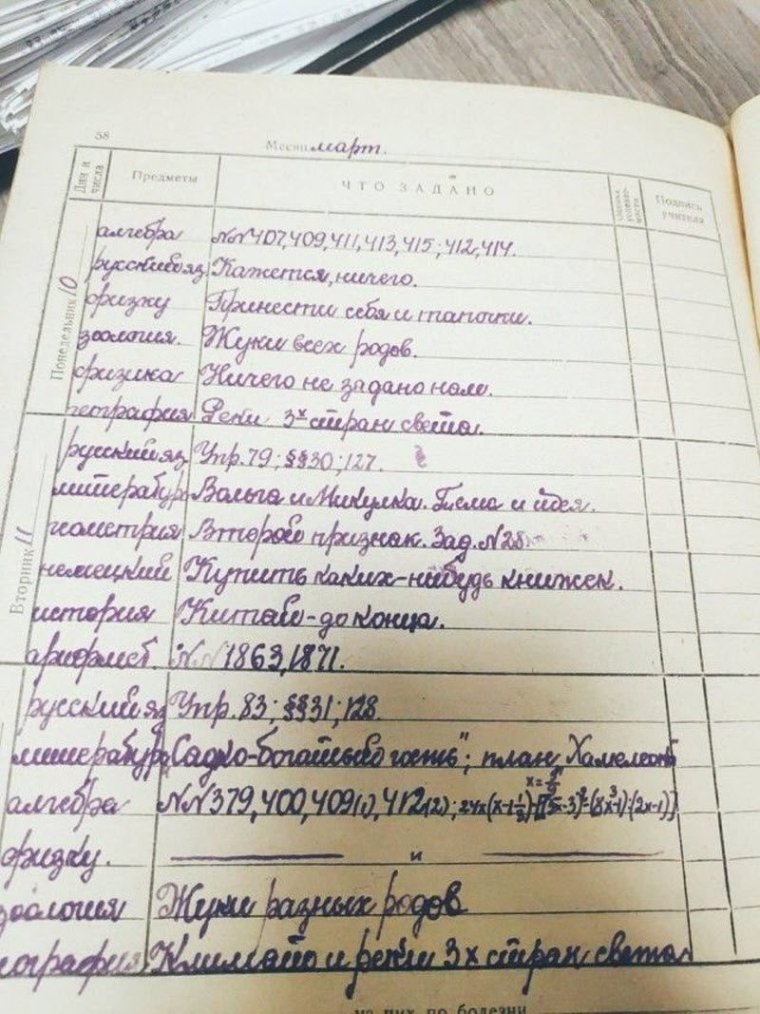 58
Месяц март.
Дни и числа Предметы ЧТО ЗАДАНО Оценка успеваемости Подпись учителя
Понедельник 10
алгебра №№407,409,411,413,415;412,414.
русский яз. Кажется, ничего.
физку Принести себя и тапочки.
зоология. Жуки всех родов.
физика Ничего не задано нам.
география Реки 3х стран света.
Вторник 11
русский яз. Упр.79; §§30;127.
литератур Вольга и Микулка. Тема и идея.
геометрия Второй признак. Зад.№28
немецкий Купить каких-нибудь книжек.
история Китай-до конца.
арифмет. №№1863,1871.
русский яз Упр.83; §§31;128.
литератур "Садко-богатый гость"; план Хамелеон
алгебра №№379,400,409(1),412(2);
физку. и
зоология Жуки разных родов
география Климат и реки 3х стран света
из них по болезни